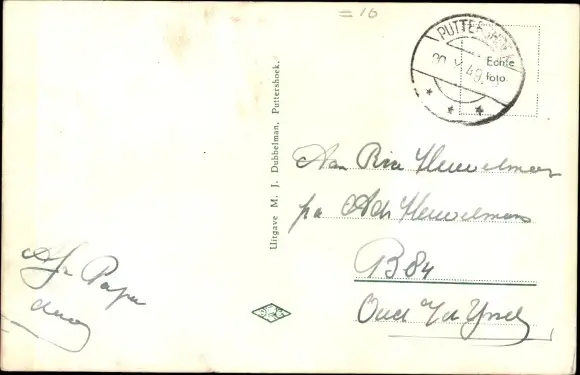 = 10
PUTTERSHOEK
Echte
foto
Uitgave M. J. Dubbelman, Puttershoek.
Aan Heuvelman
p/a Adr Heuvelmans
B 84
Oud
Afz Papa